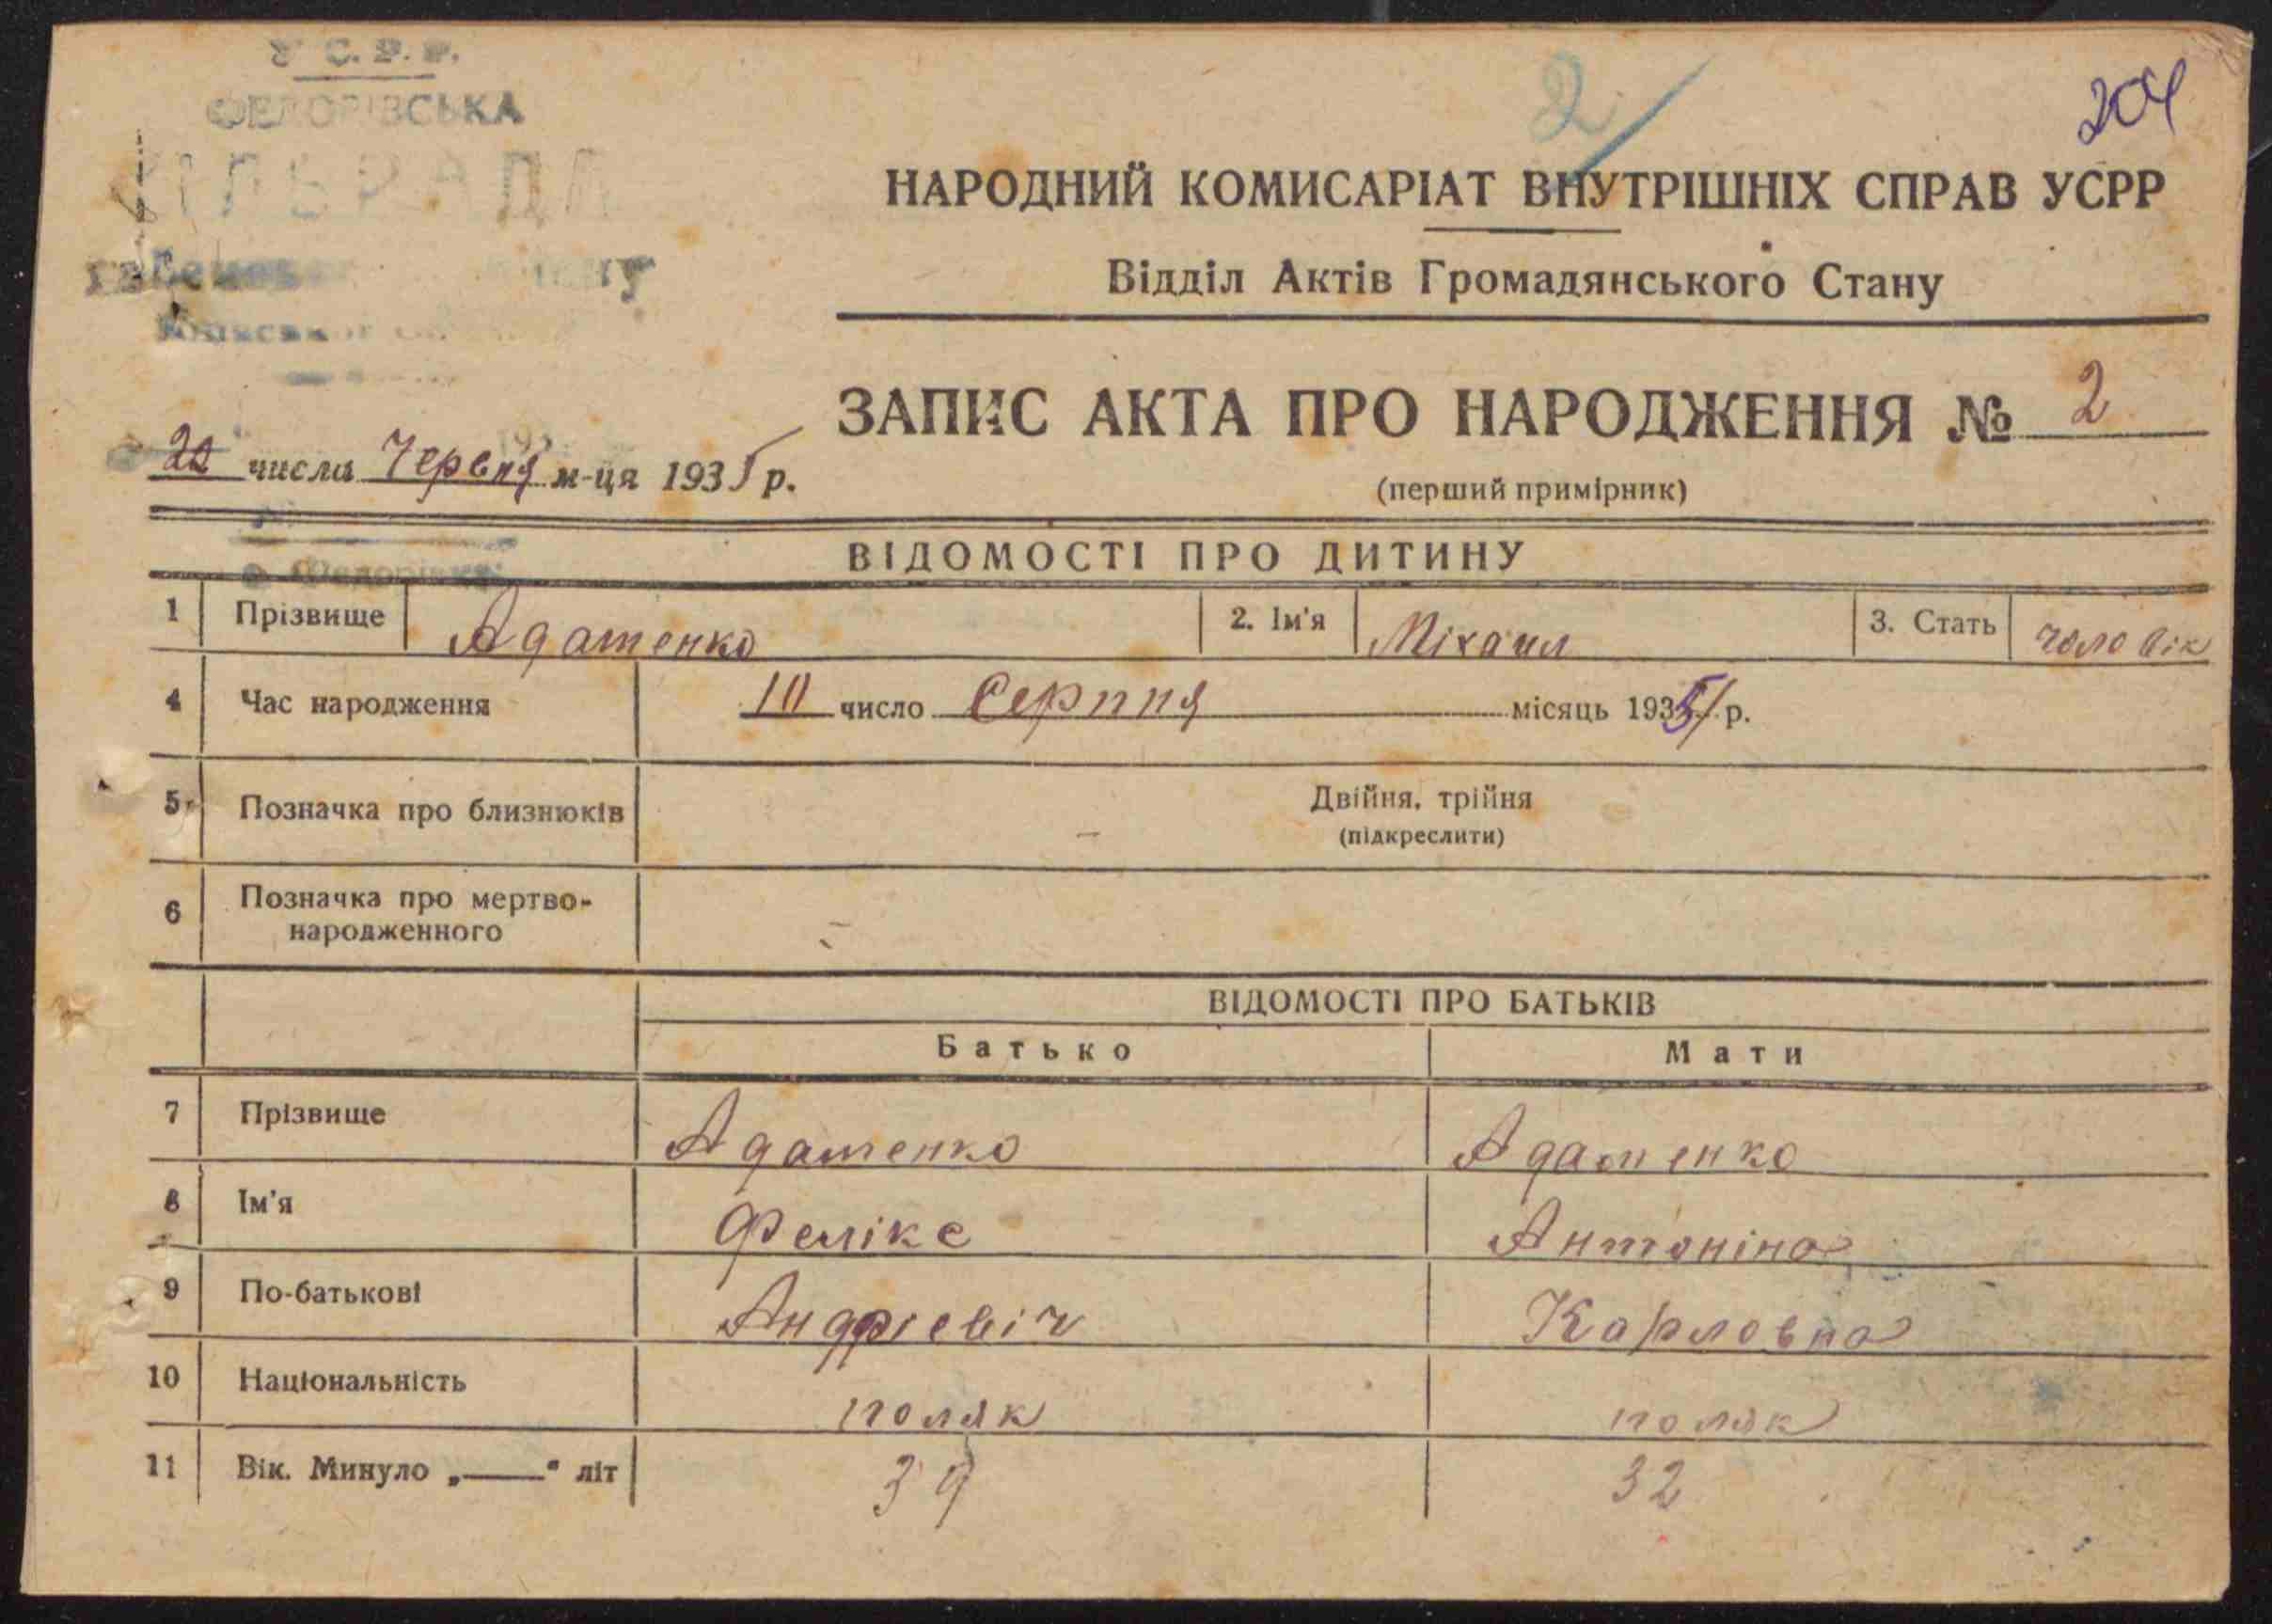 У С.Р.Р.
ФЕДОРІВСЬКА
СІЛЬРАДА
2
204
НАРОДНИЙ КОМИСАРІАТ ВНУТРІШНІХ СПРАВ УСРР
Відділ Актів Громадянського Стану
ЗАПИС АКТА ПРО НАРОДЖЕННЯ № 2
(перший примірник)
22 числа Червня м-ця 1935 р.
с. Федорівка
ВІДОМОСТІ ПРО ДИТИНУ
1 Прізвище Адаменко 2. Ім'я Міхаил 3. Стать чоловік
4 Час народження 10 число Серпня місяць 1935 р.
5 Позначка про близнюків Двійня, трійня
(підкреслити) –
6 Позначка про мертво-
народженного –
ВІДОМОСТІ ПРО БАТЬКІВ
Батько Мати
7 Прізвище Адаменко Адаменко
8 Ім'я Фелікс Антоніна
9 По-батькові Андрієвіч Карловна
10 Національність поляк поляк
11 Вік. Минуло „——“ літ 39 32